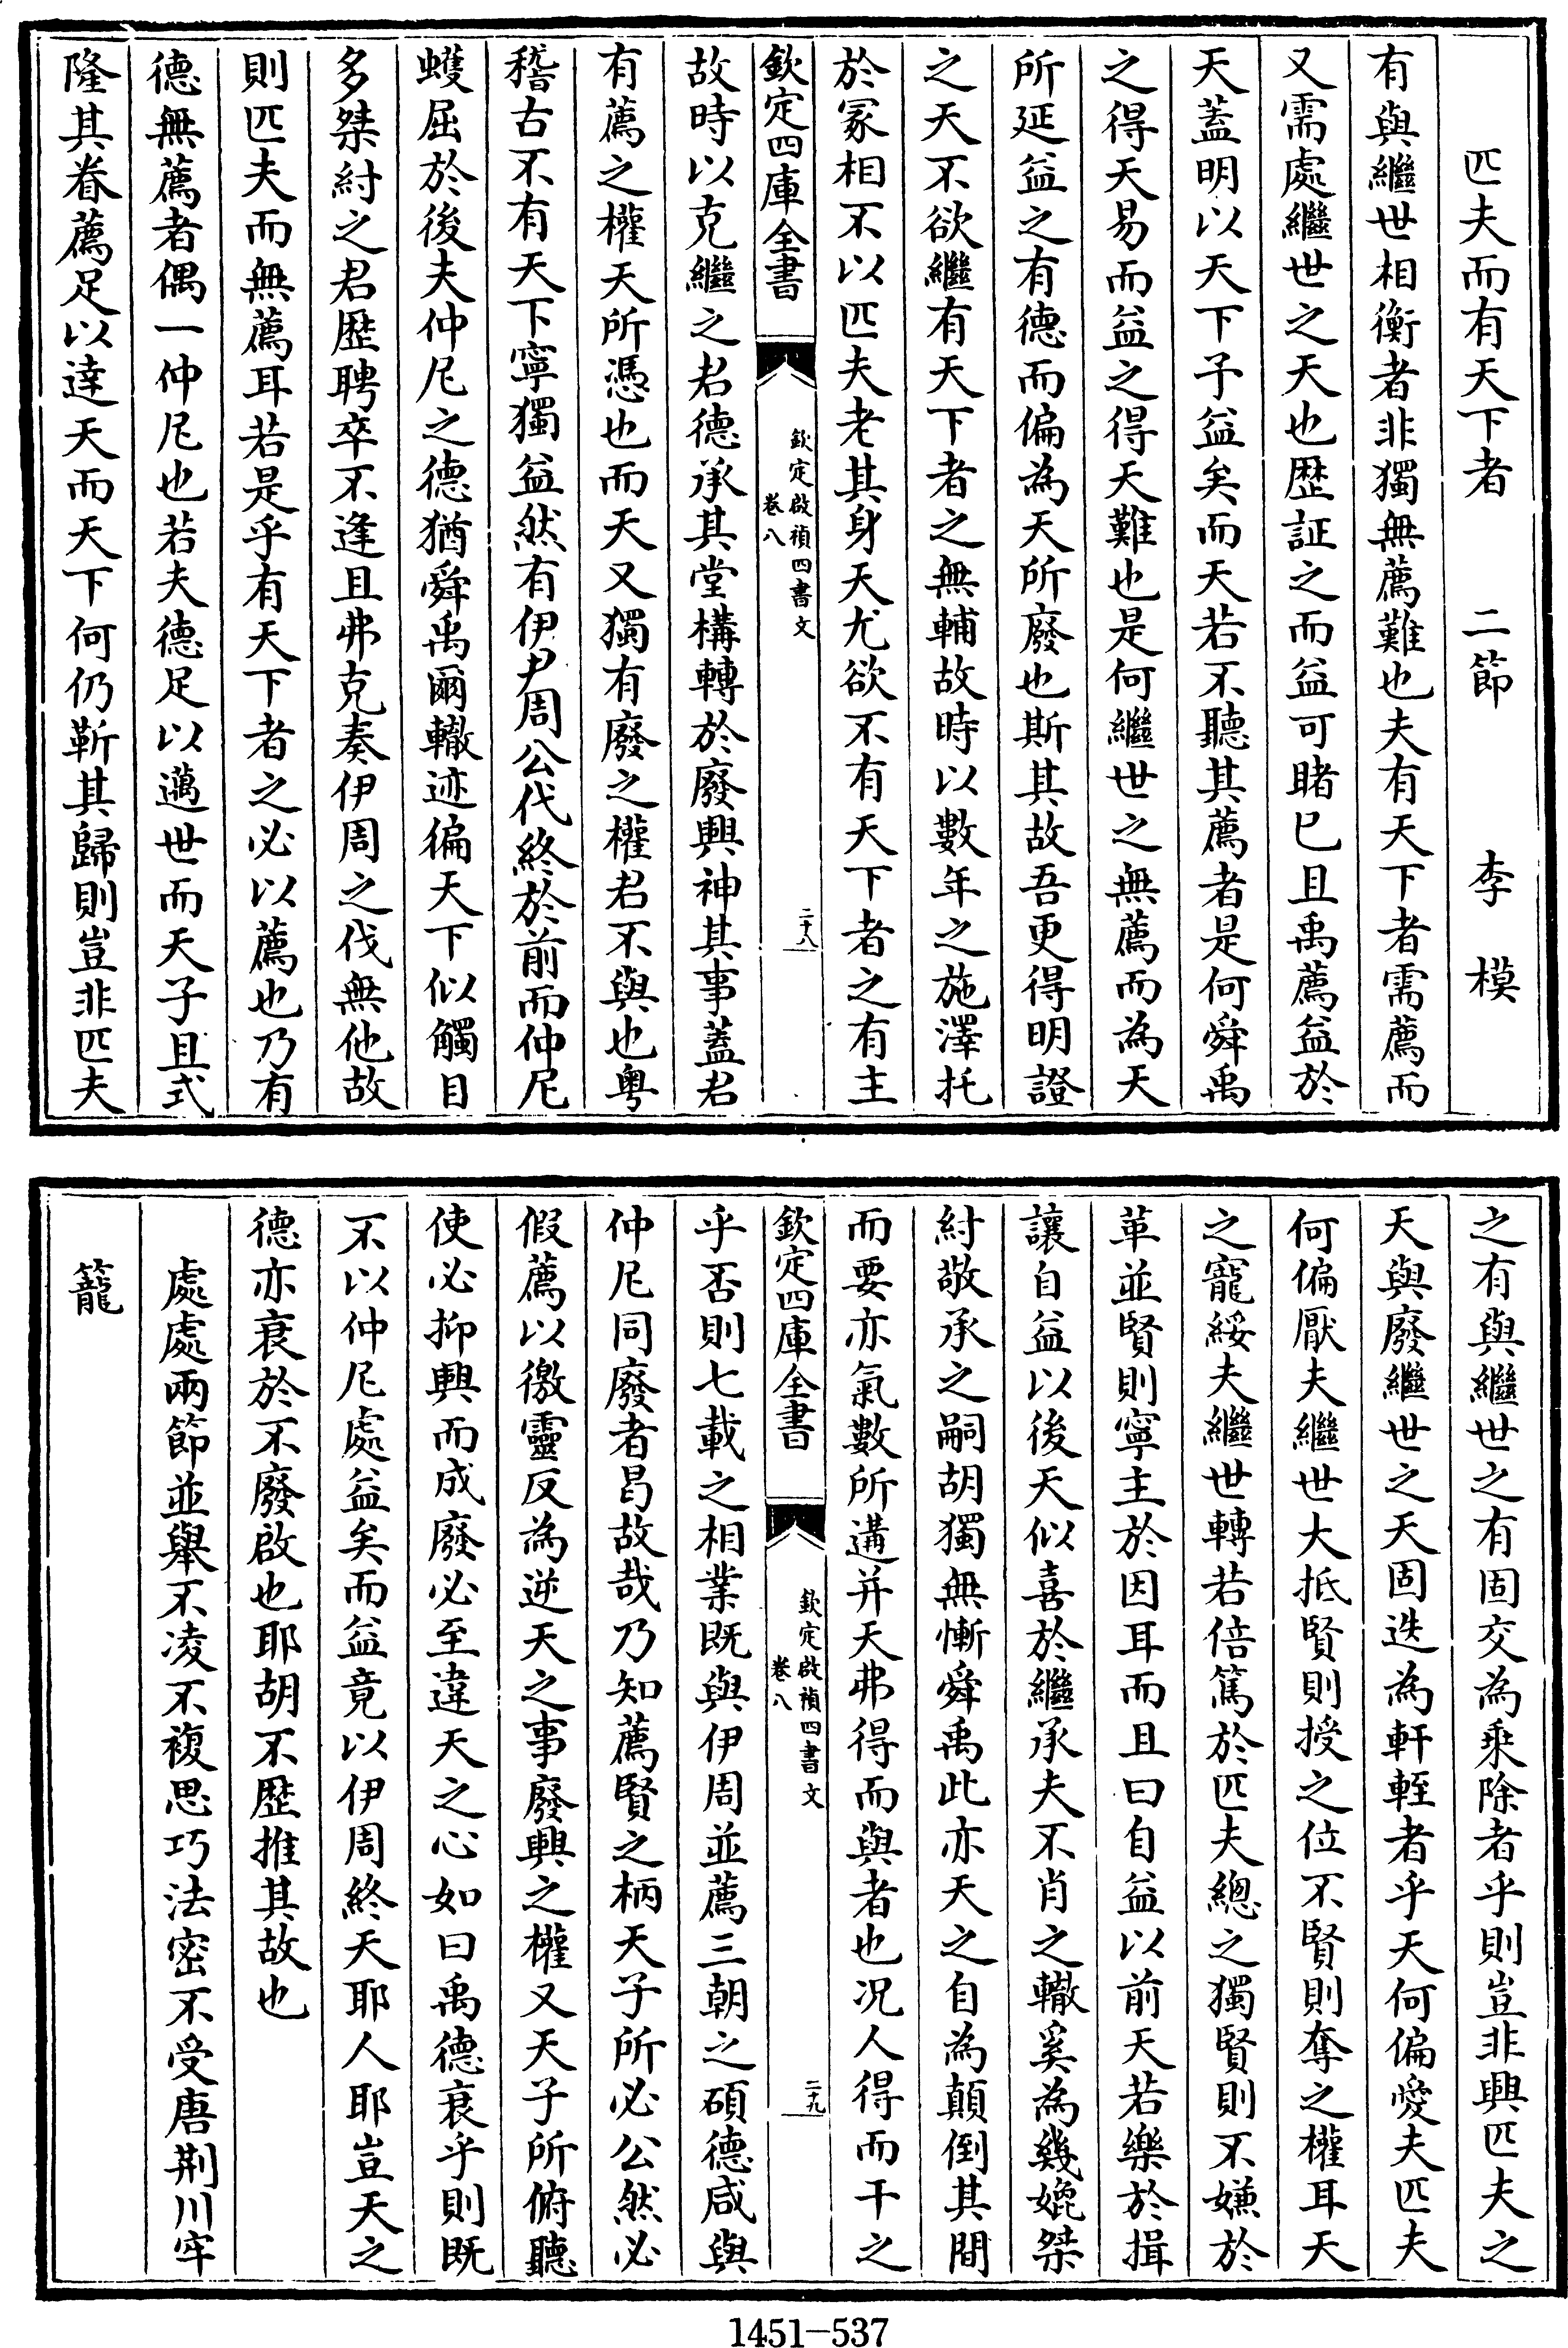 匹夫而有天下者　二節　李模
有與繼世相衡者非獨無薦難也夫有天下者需薦而
又需處繼世之天也歴証之而益可睹已且禹薦益於
天蓋明以天下予益矣而天若不聽其薦者是何舜禹
之得天易而益之得天難也是何繼世之無薦而為天
所延益之有德而偏為天所廢也斯其故吾更得明證
之天不欲繼有天下者之無輔故時以數年之施澤托
於冢相不以匹夫老其身天尤欲不有天下者之有主
欽定四庫全書
欽定啟禎四書文
卷八
二十八
故時以克繼之君德承其堂構轉於廢興神其事蓋君
有薦之權天所憑也而天又獨有廢之權君不與也粤
稽古不有天下寧獨益然有伊尹周公代終於前而仲尼
蠖屈於後夫仲尼之德猶舜禹爾轍迹徧天下似觸目
多桀紂之君歴聘卒不逢且弗克奏伊周之伐無他故
則匹夫而無薦耳若是乎有天下者之必以薦也乃有
德無薦者偶一仲尼也若夫德足以邁世而天子且式
隆其眷薦足以達天而天下何仍靳其歸則豈非匹夫
之有與繼世之有固交為乘除者乎則豈非興匹夫之
天與廢繼世之天固迭為軒輊者乎天何偏愛夫匹夫
何偏厭夫繼世大抵賢則授之位不賢則奪之權耳天
之寵綏夫繼世轉若倍篤於匹夫總之獨賢則不嫌於
革並賢則寧主於因耳而且曰自益以前天若樂於揖
讓自益以後天似喜於繼承夫不肖之轍奚為幾媲桀
紂敬承之嗣胡獨無慚舜禹此亦天之自為顛倒其間
而要亦氣數所遘并天弗得而與者也况人得而干之
欽定四庫全書
欽定啟禎四書文
卷八
二十九
乎否則七載之相業既與伊周並薦三朝之碩德咸與
仲尼同廢者曷故哉乃知薦賢之柄天子所必公然必
假薦以徼靈反為逆天之事廢興之權又天子所俯聽
使必抑興而成廢必至違天之心如曰禹德衰乎則既
不以仲尼處益矣而益竟以伊周終天耶人耶豈天之
德亦衰於不廢啟也耶胡不歴推其故也
處處兩節並舉不凌不複思巧法密不受唐荆川牢
籠
1451-537